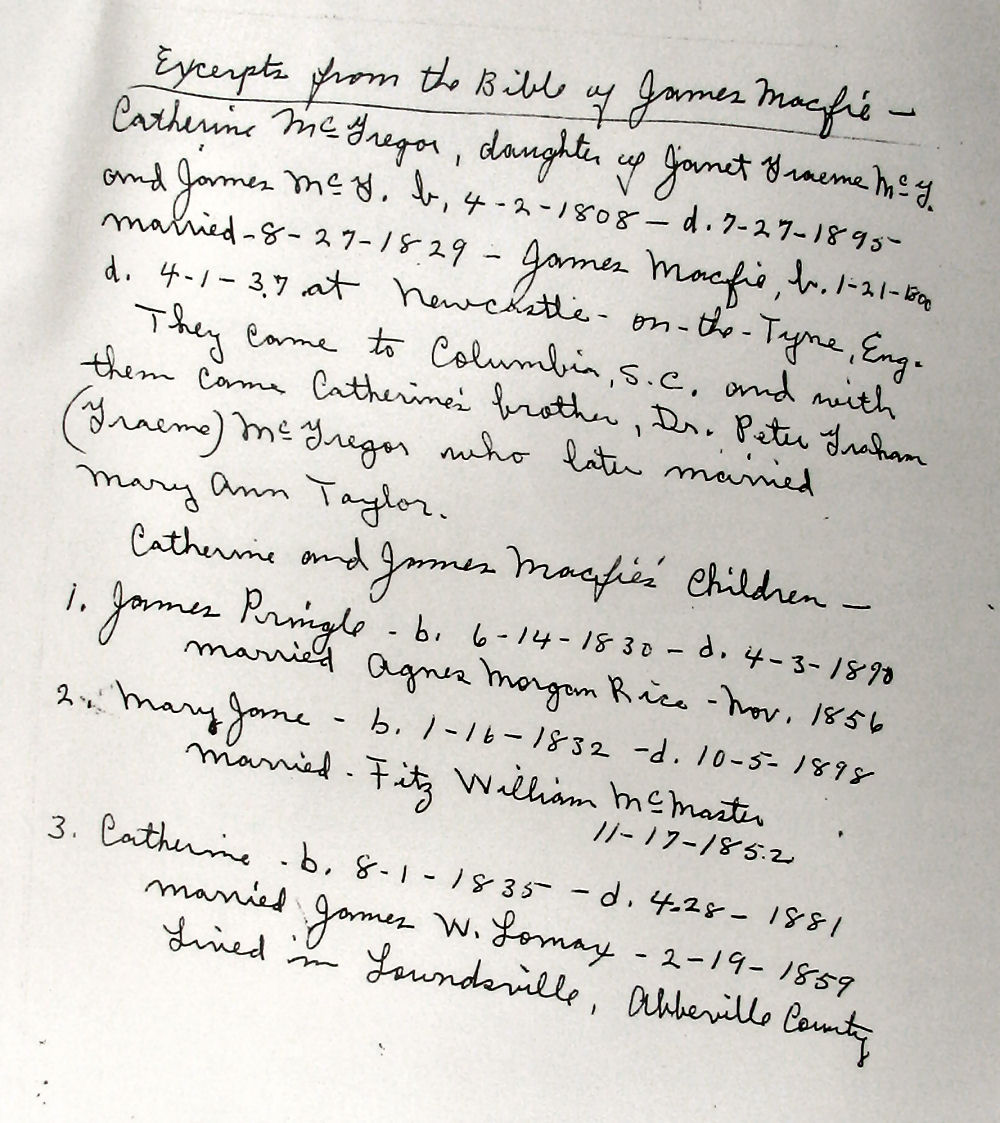 Excerpts from the Bible of James Macfie —
Catherine McGregor, daughter of Janet Graeme McG.
and James McG. b. 4-2-1808 — d. 7-27-1895
married - 8-27-1829 - James Macfie, b. 1-21-1800
d. 4-1-37 at Newcastle-on-the-Tyne, Eng.
They came to Columbia, S.C. and with
them came Catherine's brother, Dr. Peter Graham
(Graeme) McGregor who later married
Mary Ann Taylor.
Catherine and James Macfies' Children —
1. James Pringle - b. 6-14-1830 - d. 4-3-1890
married Agnes Morgan Rice - Nov. 1856
2. Mary Jane - b. 1-16-1832 - d. 10-5-1898
married - Fitz William McMaster
11-17-1852
3. Catherine - b. 8-1-1835 - d. 4-28-1881
married James W. Lomax - 2-19-1859
Lived in Loundsville, Abbeville County